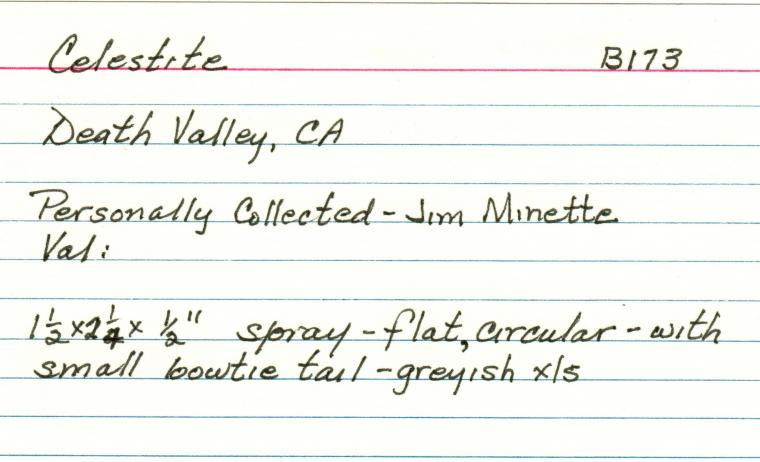 Celestite B173
Death Valley, CA
Personally Collected - Jim Minette
Val:
1 1/2 x 2 1/4 x 1/2" spray - flat, circular - with
small bowtie tail - greyish xls